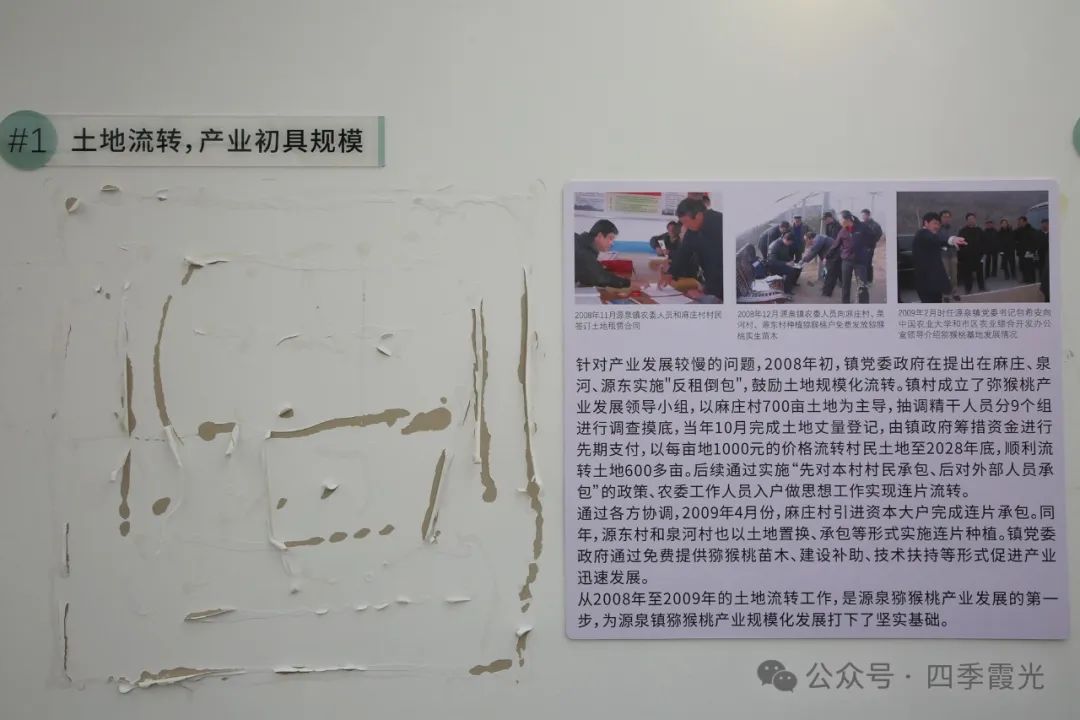 #1 土地流转，产业初具规模
2008年11月源泉镇农委人员和麻庄村村民
签订土地租赁合同
2008年12月源泉镇农委人员向麻庄村、泉
河村、源东村种植猕猴桃户免费发放猕猴
桃实生苗木
2009年2月时任源泉镇党委书记包希安向
中国农业大学和市区农业综合开发办公
室领导介绍猕猴桃基地发展情况
针对产业发展较慢的问题，2008年初，镇党委政府在提出在麻庄、泉
河、源东实施"反租倒包"，鼓励土地规模化流转。镇村成立了弥猴桃产
业发展领导小组，以麻庄村700亩土地为主导，抽调精干人员分9个组
进行调查摸底，当年10月完成土地丈量登记，由镇政府筹措资金进行
先期支付，以每亩地1000元的价格流转村民土地至2028年底，顺利流
转土地600多亩。后续通过实施“先对本村村民承包、后对外部人员承
包”的政策、农委工作人员入户做思想工作实现连片流转。
通过各方协调，2009年4月份，麻庄村引进资本大户完成连片承包。同
年，源东村和泉河村也以土地置换、承包等形式实施连片种植。镇党委
政府通过免费提供猕猴桃苗木、建设补助、技术扶持等形式促进产业
迅速发展。
从2008年至2009年的土地流转工作，是源泉猕猴桃产业发展的第一
步，为源泉镇猕猴桃产业规模化发展打下了坚实基础。
公众号·四季霞光